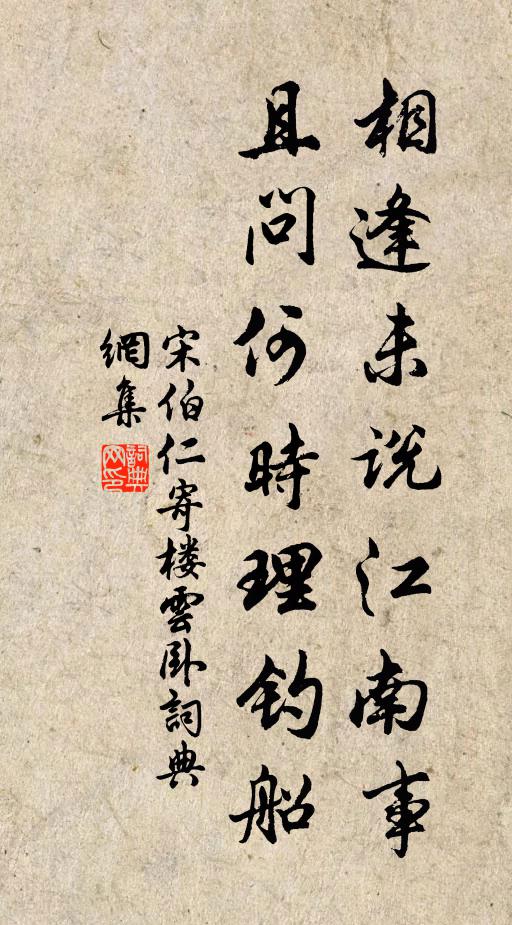 相逢未说江南事
且问何時理钓船
宋伯仁寄楼雲卧詞典
網集
詞典网印